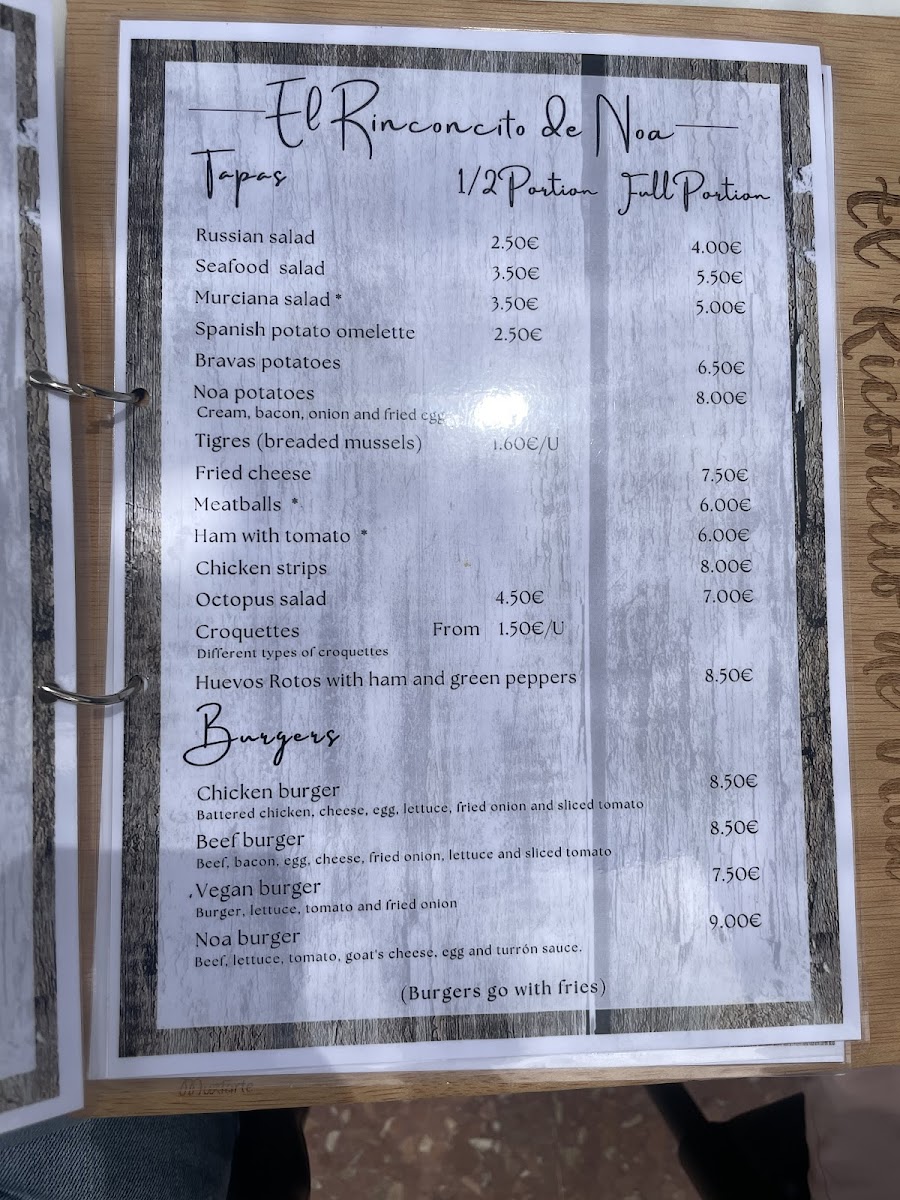 El Rinconcito de Noa
Tapas 1/2 Portion Full Portion
Russian salad 2.50€ 4.00€
Seafood salad 3.50€ 5.50€
Murciana salad * 3.50€ 5.00€
Spanish potato omelette 2.50€
Bravas potatoes 6.50€
Noa potatoes 8.00€
Cream, bacon, onion and fried egg
Tigres (breaded mussels) 1.60€/U
Fried cheese 7.50€
Meatballs * 6.00€
Ham with tomato * 6.00€
Chicken strips 8.00€
Octopus salad 4.50€ 7.00€
Croquettes From 1.50€/U
Different types of croquettes
Huevos Rotos with ham and green peppers 8.50€
Burgers
Chicken burger 8.50€
Battered chicken, cheese, egg, lettuce, fried onion and sliced tomato
Beef burger 8.50€
Beef, bacon, egg, cheese, fried onion, lettuce and sliced tomato
.Vegan burger 7.50€
Burger, lettuce, tomato and fried onion
Noa burger 9.00€
Beef, lettuce, tomato, goat's cheese, egg and turrón sauce.
(Burgers go with fries)
El Rinconcito de